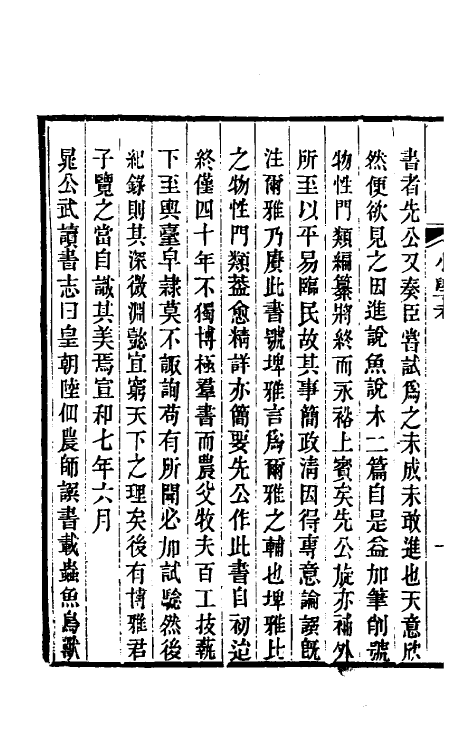 書者先公又奏臣嘗試爲之未成未敢進也天意欣
然便欲見之因進說魚說木二篇自是益加筆削號
物性門類編纂將終而永裕上賓矣先公旋亦補外
所至以平易臨民故其事簡政淸因得專意論譔旣
注爾雅乃賡此書號埤雅言爲爾雅之輔也埤雅比
之物性門類葢愈精詳亦簡要先公作此書自初迨
終僅四十年不獨博極羣書而農父牧夫百工技藝
下至輿臺皁隸莫不諏詢苟有所聞必加試驗然後
紀錄則其深微淵懿宜窮天下之理矣後有博雅君
子覽之當自識其美焉宣和七年六月
晁公武讀書志曰皇朝陸佃農師譔書載蟲魚鳥獸